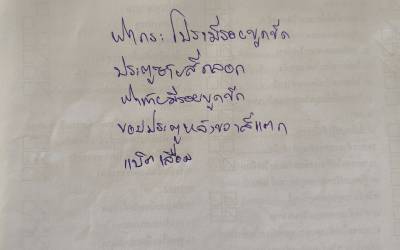 ฝากระโปรงมีรอยขูดขีด
ประตูซ้ายสีถลอก
ฝาท้ายมีรอยขูดขีด
ขอบประตูหลังขวาสีแตก
แบตเสื่อม